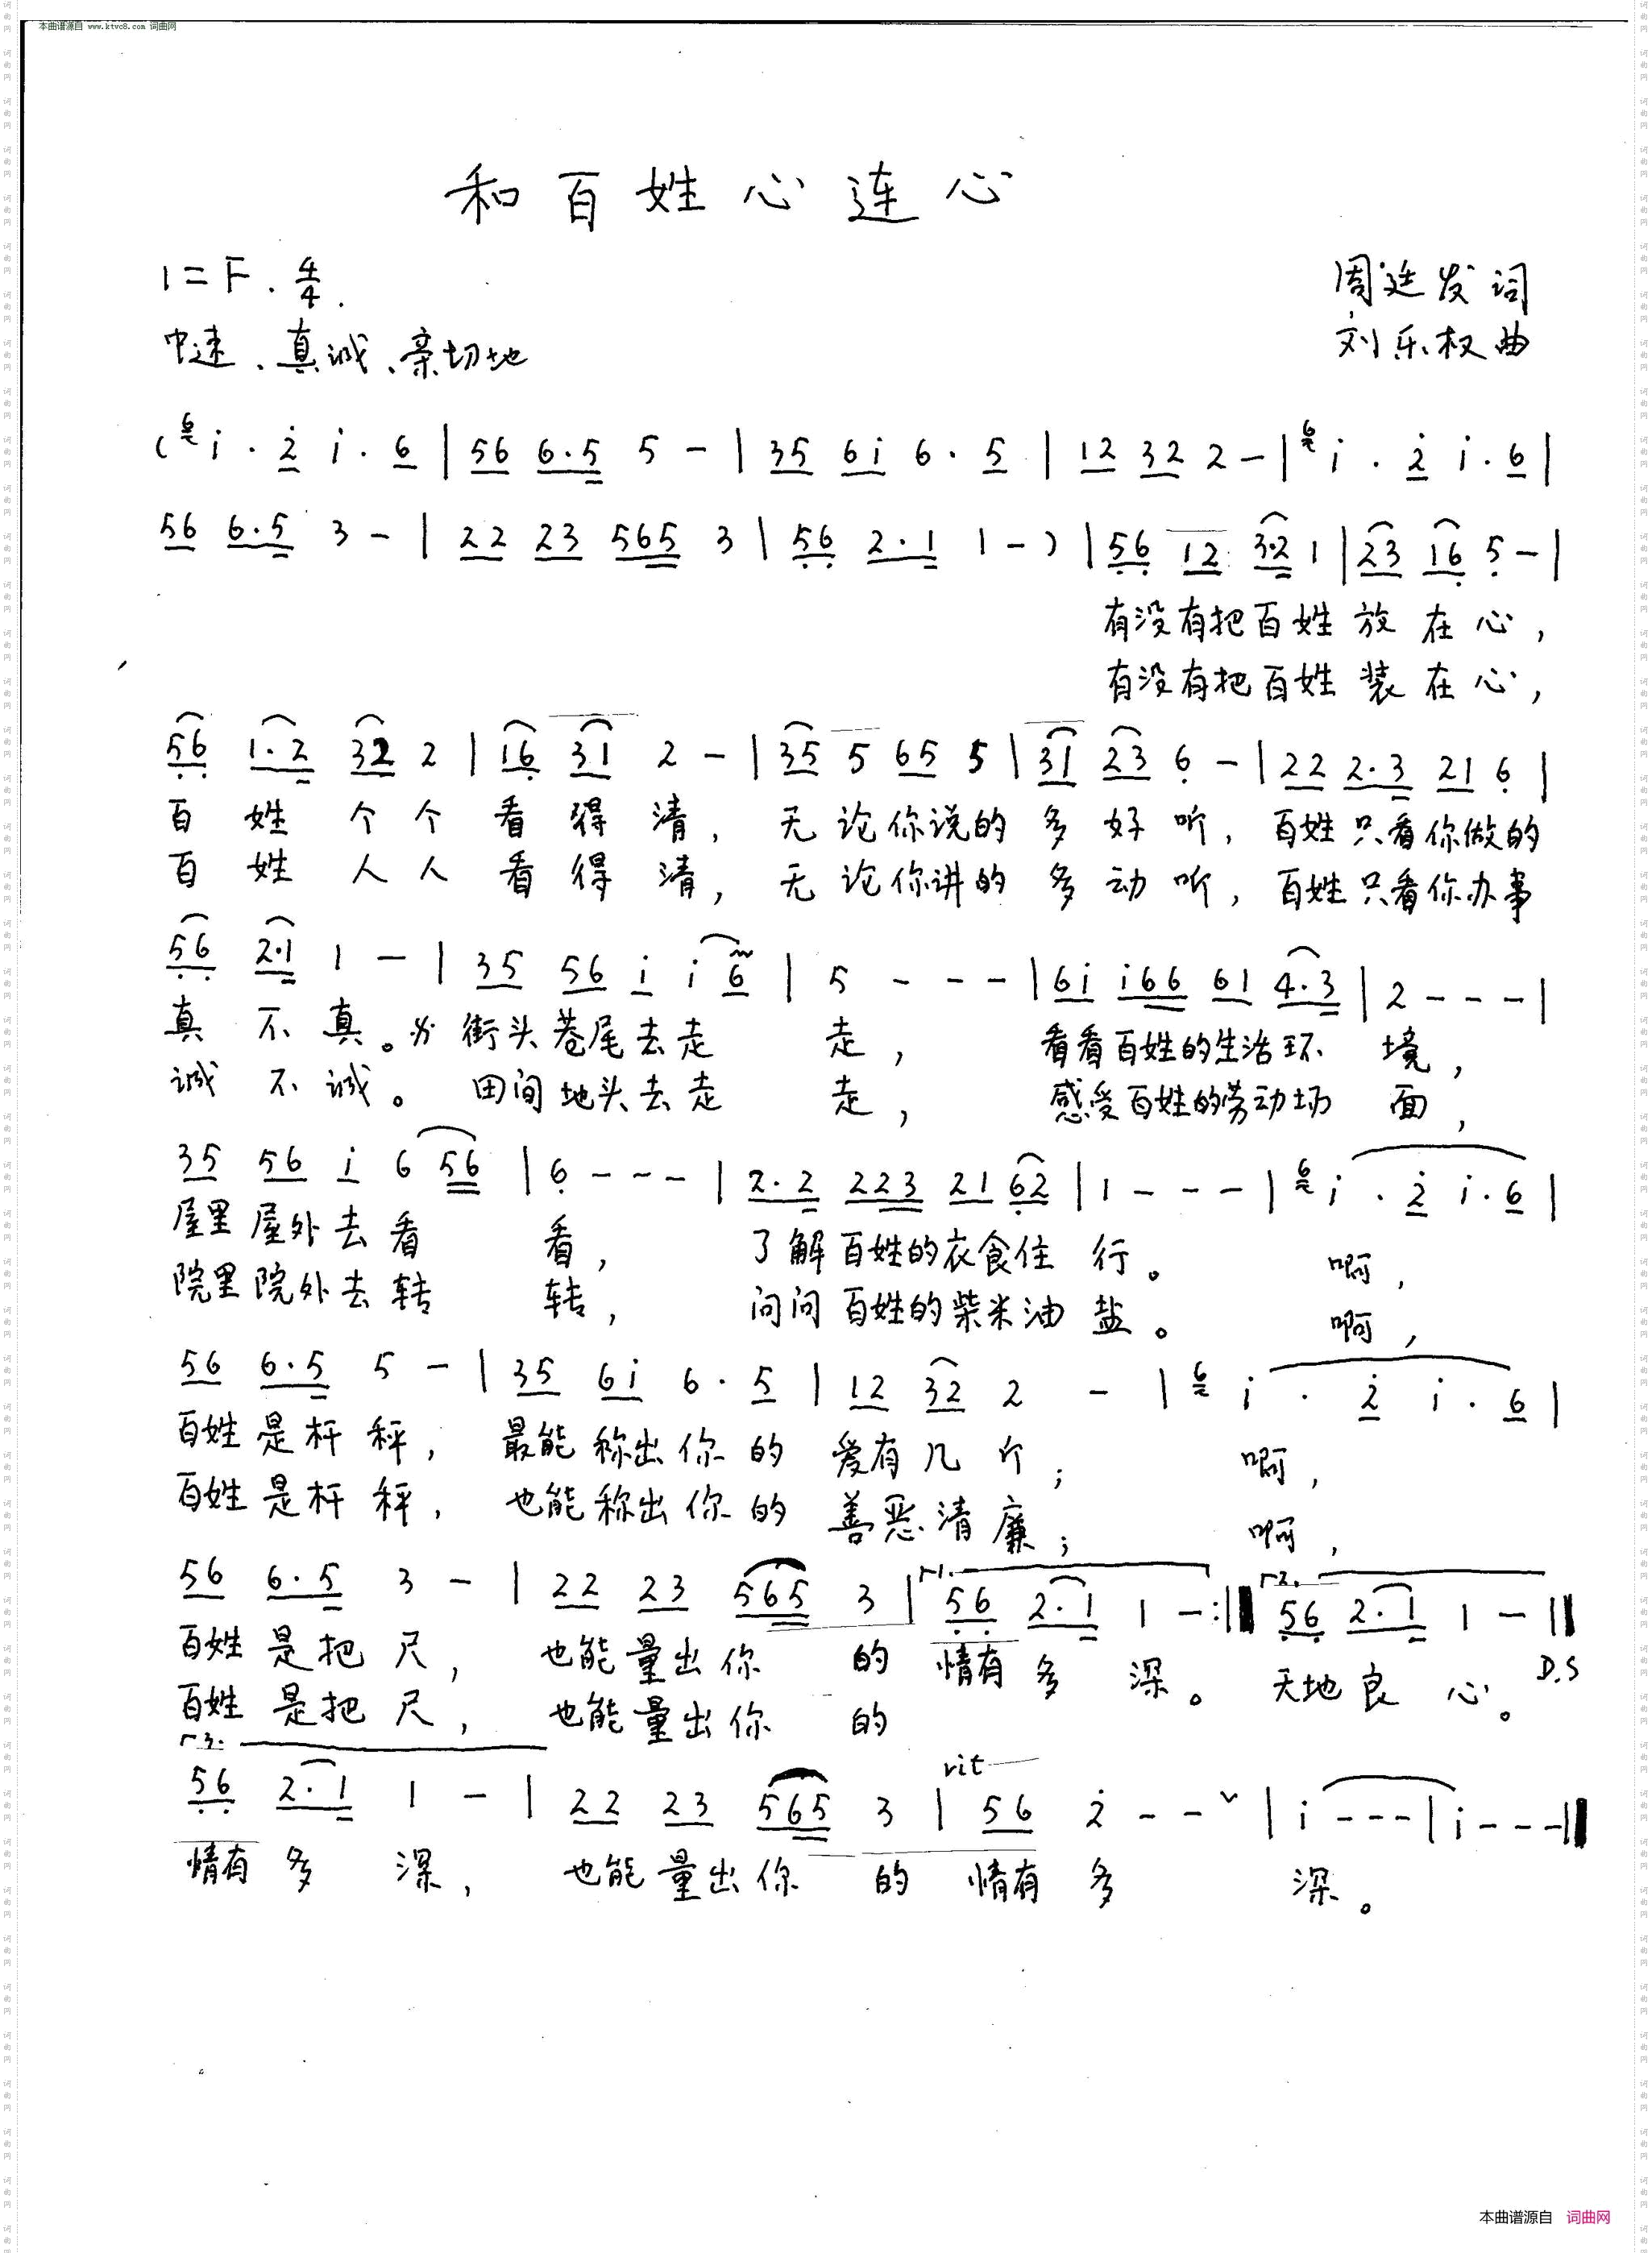 本曲谱源自 www.ktvc8.com 词曲网
和百姓心连心
1=F. 4/4.
周廷发词
中速、真诚、亲切地
刘乐权曲
(6 i . 2 i . 6 | 56 6.5 5 - | 35 6i 6 . 5 | 12 32 2 - | 6 i . 2 i . 6 |
56 6.5 3 - | 22 23 565 3 | 56 2.1 1 - ) | 56 12 3.2 1 | 23 16 5 - |
有没有把百姓 放 在 心,
有没有把百姓 装 在 心,
56 1.2 32 2 | 16 31 2 - | 35 5 65 5 | 31 23 6 - | 22 2.3 21 6 |
百 姓 个 个 看 得 清, 无 论你说的 多 好 听, 百姓只看你做的
百 姓 人 人 看 得 清, 无 论你讲的 多 动 听, 百姓只看你办事
56 2.1 1 - | 35 56 i i 6 | 5 - - - | 6i i66 61 4.3 | 2 - - - |
真 不 真。 街头巷尾去走 走, 看看百姓的生活环 境,
诚 不 诚。 田间地头去走 走, 感受百姓的劳动场 面,
35 56 i 6 56 | 6 - - - | 2.2 223 21 62 | 1 - - - | 6 i . 2 i . 6 |
屋里屋外去看 看, 了解百姓的衣食住 行。 啊,
院里院外去转 转, 问问百姓的柴米油 盐。 啊,
56 6.5 5 - | 35 6i 6 . 5 | 12 32 2 - | 6 i . 2 i . 6 |
百姓是杆 秤, 最能称出你 的 爱有几 斤; 啊,
百姓是杆 秤, 也能称出你 的 善恶清 廉; 啊,
56 6.5 3 - | 22 23 565 3 | 1. 56 2.1 1 - :| 2. 56 2.1 1 - ||
百姓是把 尺, 也能量出你 的 情有 多 深。 天地良 心。 D.S
百姓是把 尺, 也能量出你 的
3.
rit
56 2.1 1 - | 22 23 565 3 | 56 2 - - ˅ | i - - - | i - - - ||
情有 多 深, 也能量出你 的 情有 多 深。
本曲谱源自 词曲网